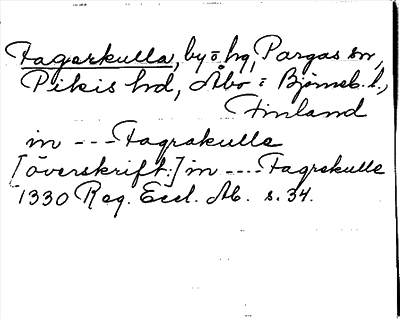 Fagerkulla, by o hg, Pargas sn,
Pikis hd, Åbo o Björneb. l.,
Finland
in --- Fagrakulle
[överskrift:] in ---- Fagrekulle
1330 Reg. Eccl. Ab. s. 34.